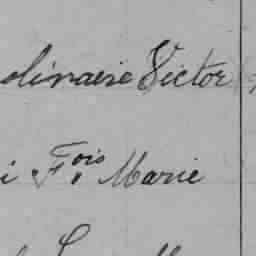 olinaire Victor
i F.ois Marie